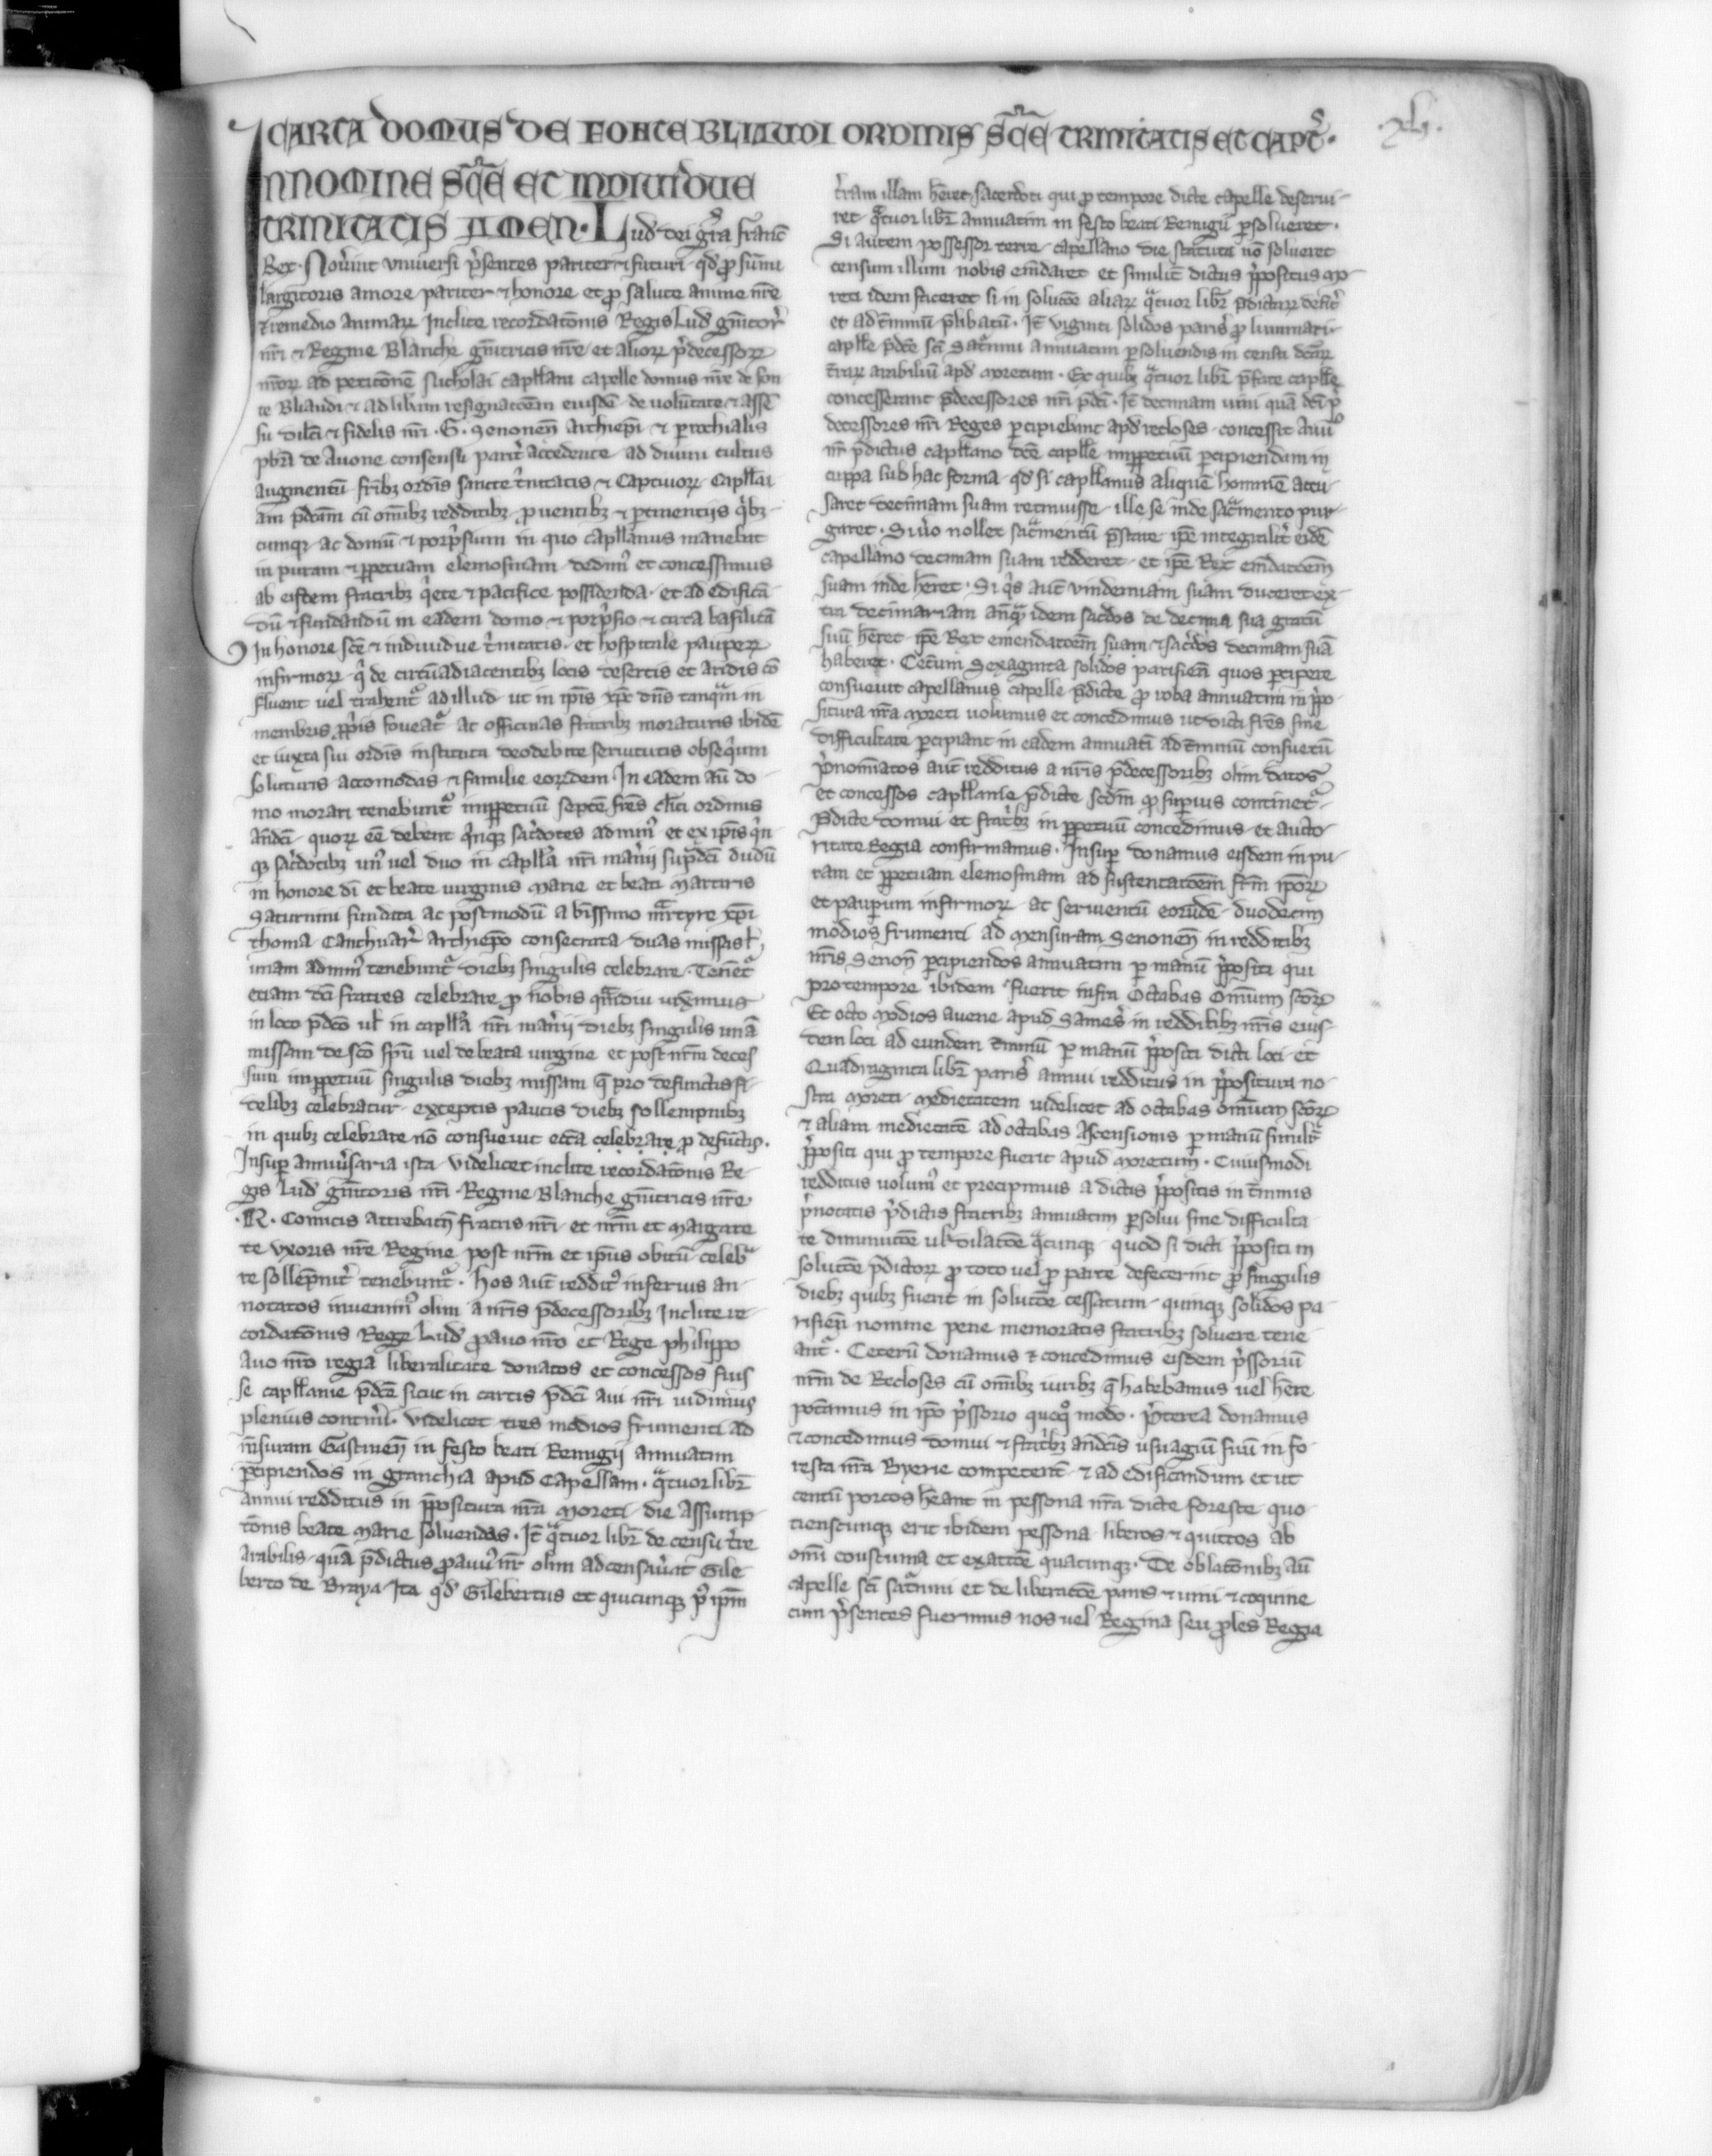 CARTA DOMUS DE FONTE BLIAUDI ORDINIS SC̄E TRINITATIS ET CAPT̄.
.xli.
IN NOMINE SC̄E ET INDIVIDUE
TRINITATIS AMEN. Lud' dei gr̄a franc̄
Rex. Nov̄int universi p̄sentes pariter ⁊ futuri qd̓ pro sūmi
largitoris amore pariter ⁊ honore et pro salute anime nr̄e
⁊ remedio animaꝝ Inclite recordatōnis Regis Lud' gēnitor̓
nr̄i ⁊ Regine Blanche gēnitricis nr̄e et alioꝝ p̄decessoꝝ
nr̄oꝝ ad peticōnē Nicholai capll̄ani capelle domus nr̄e de fon
te Bliaudi ⁊ ad lib̄am resignatōem eiusdē de volūtate ⁊ assē
su dilc̄i ⁊ fidelis nr̄i .G. Senonen̄ Archiep̄i ⁊ p̱rochialis
pb̄ri de Avone consensu parit̓ accedente ad divini cultus
augmentū fr̄ibꝫ ordīs sancte t̓nitatis ⁊ Captivoꝝ Capll̄ai
am p̄dc̄am cū om̄ibꝫ redditibꝫ proventibꝫ ⁊ p̱tinentijs q̓bꝫ
cunqꝫ ac domū ⁊ porp̓sium in quo capll̄anus manebat
in puram ⁊ p̱petuam elemosinam dedim̓ et concessimus
ab eisdem fratribꝫ q̓ete ⁊ pacifice possidenda. et ad edifican̄
dū ⁊ fundandū in eadem domo ⁊ porp̓sio ⁊ circa basilicā
In honore sc̄e ⁊ individue t̓nitatis. et hospitale paupeꝝ
infirmoꝝ q̓ de circūadiacentibꝫ locis desertis et aridis cō
fluent vel trahent᷑ ad illud ut in ip̄is xp̄c dn̄s tanq̄m in
membris p̱p̓is foveat᷑ ac officinas fratribꝫ moraturis ibidē
et iuxta sui ordīs instituta deo debite servitutis obseq̓um
soluturis accomodas ⁊ familie eorūdem In eadem au̅ do
mo morari tenebunt᷑ imp̱petuū septē fr̄es cl̄ici ordinis
an̄dc̄i quoꝝ eē debent q̓nqꝫ sac̓dotes ad min̓ et ex ip̄is q̓n
qꝫ sac̓dotibꝫ un̓ vel duo in capll̄a nr̄i man̓ii sup̄dc̄i dudū
in honore di̅ et beate virginis Marie et beati Martiris
Saturnini fundata ac postmodū a b̄issimo m̄rtyre xp̄i
thoma Canthuar̓ archiep̄o consecrata duas missas
ad min̓ tenebunt᷑ diebꝫ singulis celebrare. Tenēt᷑
etiam dc̄i fratres celebrare pro nobis q̄mdiu vixīmus
in loco p̄dc̄o ul̓ in capll̄a nr̄i man̓ii diebꝫ singulis unā
missam de sc̄o sp̄u vel de beata virgine et post nr̄m deces
sum imp̱petuū singulis diebꝫ missam q̄ pro defunctis fi
delibꝫ celebratur exceptis paucis diebꝫ sollempnibꝫ
in quibꝫ celebrare nō consuevit ecc̄a celebrare pro defūctis.
Insup̱ anniv̓saria ista videlicet inclite recordatōnis Re
gis Lud' gēnitoris nr̄i Regine Blanche gēnitricis nr̄e
.R. Comitis Attrebatēn fratris nr̄i et nr̄m et Margare
te uxoris nr̄e Regine post nr̄m et ip̄ius obitū celeb̄
re sollēpnit̓ tenebunt᷑. Hos aut̄ reddit̓ inferius an
notatos invenim̓ olim a nr̄is p̄decessoribꝫ Inclite re
cordatōnis Rege Lud' proavo nr̄o et Rege philippo
Avo nr̄o regia liberalitate donatos et concessos fuis
se capll̄anie p̄dc̄e sicut in cartis p̄dc̄i avi nr̄i vidimus
plenius contin̓i. Videlicet tres modios frumenti ad
mēsuram Gastinen̄ in festo beati Remigij annuatim
p̱cipiendos in granchia apud Capellam. q̄tuor libr̄
annui redditus in p̄positura nr̄a Moreti die Assump
tōnis beate Marie solvendas. It̄ q̄tuor libr̄ de censu t̓re
arabilis quā p̄dictus proavus nr̄ olim adcensav̓at Gile
berto de Braya Ita qd̓ Gilebertus et quicunqꝫ p̓ ip̄m
t̓ram illam hēret sacerdoti qui pro tempore dicte capelle deservi
ret q̄tuor libr̄ annuatim in festo beati Remigij p̱solveret.
Si autem possessor terre capellano die statuta nō solveret
censum illum nobis emēdaret et similit̓ dictus p̄positus Mo
reti idem faceret si in solucōe aliaꝝ q̄tuor libr̄ p̄dictaꝝ defic̓et
et ad t̓minū p̄libatū. It̄ viginti solidos paris̓ pro luminari
capll̄e p̄dc̄e sc̄i Sat̓nini annuatim p̱solvendis in censu dc̄aꝝ
t̓raꝝ arabiliū apd̓ Moretum. Ex quibꝫ q̄tuor libr̄ p̄fate capll̄e
concesserunt p̄decessores nr̄i p̄dc̄i. It̄ decimam vini quā dc̄i p̄
decessores nr̄i Reges p̱cipiebant apd̓ recloses concessit avu᷒
nr̄ p̄dictus capll̄ano dc̄e capll̄e imp̱petuū p̱cipiendam in
cuppa sub hac forma qd̓ si capll̄anus aliquē hominē accu
saret decimam suam retinuisse ille se inde sac̄mento pur
garet. Si v̓o nollet sac̄mentū p̄stare ip̄e integralit̓ eidē
capellano decimam suam redderet et ip̄e Rex emēdatōem
suam inde hēret. Si q̓s aut̄ vindemiam suam duceret ex
tra decimariam an̄q̄ idem sac̓dos de decima sua gratū
suū hēret ip̄e Rex emendatōem suam ⁊ sac̓dos decimam suā
haberet. Cet̓um Sexaginta solidos parisien̄ quos p̱cipere
consuevit capellanus capelle p̄dicte pro roba annuatim in p̄po
situra nr̄a Moreti volumus et concedimus ut dicti fr̄es sine
difficultate p̱cipiant in eadem annuatī ad t̓minū consuetū
P̄nomīatos aut̄ redditus a nr̄is p̄decessoribꝫ olim datos
et concessos capll̄anie p̄dicte scd̄m qd̓ sup̱ius continet᷑
P̄dicte domui et frat̓bꝫ in p̱petuū concedimus et aucto
ritate Regia confirmamus. Insup̱ donamus eisdem in pu
ram et p̱petuam elemosinam ad sustentatōem fr̄m ip̄oꝝ
et paup̱um infirmoꝝ ac servientū eorūdē duodecim
modios frumenti ad mensuram Senonen̄ in redditibꝫ
nr̄is Senon̄ p̱cipiendos annuatim p̱ manū p̄positi qui
pro tempore ibidem fuerit infra Octabas Om̄ium Sc̄oꝝ
Et octo Modios avene apud Sames̓ in redditibꝫ nr̄is eius
dem loci ad eundem t̓minū p̱ manū p̄positi dicti loci et
Quadraginta libr̄ paris̓ annui redditus in p̄positura no
stra Moreti Medietatem videlicet ad octabas Om̄ium Sc̄oꝝ
⁊ aliam medietatē ad octabas Ascensionis p̱ manū similit̓
p̄positi qui pro tempore fuerit apud Moretum. Cuiusmodi
redditus volum̓ et precipimus a dictis p̄positis in t̓minis
p̄notatis p̄dictis fratribꝫ annuatim p̱solvi sine difficulta
te diminucōe ul̓ dilatōe q̄cunqꝫ quod si dicti p̄positi in
solucōe p̄dictoꝝ pro toto vel pro parte defecerint pro singulis
diebꝫ quibꝫ fuerit in solucōe cessatum quinqꝫ solidos pa
risien̄ nomine pene memoratis fratribꝫ solvere tene
ant᷑. Ceterū donamus ⁊ concedimus eisdem p̄ssoriū
nr̄m de Recloses cū om̄ibꝫ iuribꝫ q̄ habebamus vel hēre
pot̓amus in ip̄o p̄ssorio quoqͦ modo. P̄terea donamus
⁊ concedimus domui ⁊ frat̓bꝫ an̄dc̄is usuagiū suū in fo
resta nr̄a Byerie competent̄ ⁊ ad edificandum et ut
centū porcos hēant in pessona nr̄a dicte foreste quo
tienscunqꝫ erit ibidem pessona liberos ⁊ quittos ab
om̄i coustuma et exactōe quacunqꝫ. De oblatōnibꝫ au̅
capelle sc̄i sat̓nini et de liberatōe panis ⁊ vini ⁊ coquine
cum p̄sentes fuerimus nos vel Regina seu proles Regia